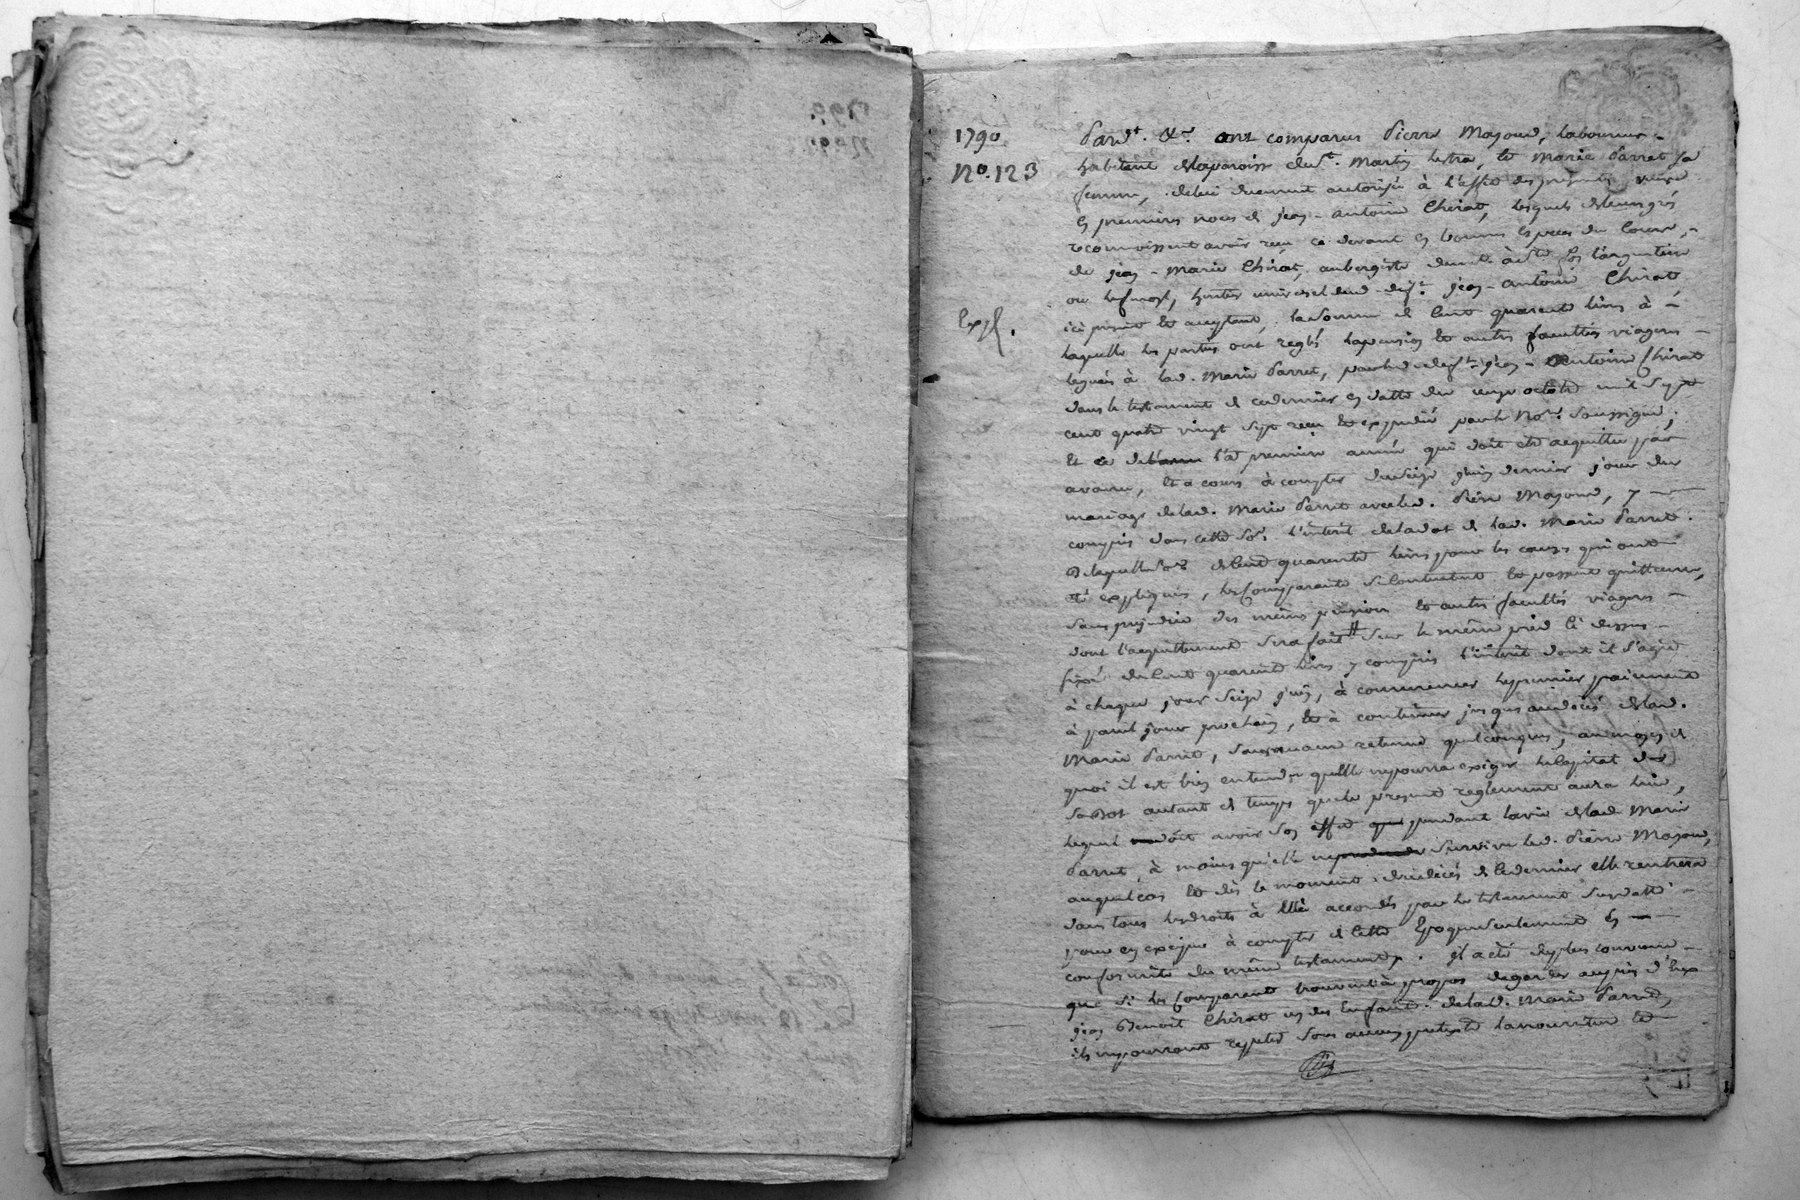 1790
No. 123
Pard.t &.a ont comparus Pierre Mayoud, laboureur
habitant de la paroisse de St. Martin lestra, et Marie Parret sa
femme, de lui duement autorisée à l'effet des présentes, veuve
en premieres noces de jean-antoine Chirat, lesquels de leur gré
reconnoissent avoir reçu ci devant en bonnes especes du cours,
de jean-Marie Chirat, aubergiste demt. à St.
ou heritier universel dud. deft. jean-antoine Chirat,
Exp.
ici présent et acceptant, la somme de Cent quarante livres à
laquelle les parties ont reglés la pension et autres facultés viageres
leguées à lad. Marie Parret, par led. deft. jean-Antoine Chirat
dans le testament de ce dernier en datte du onze octobre mil sept
cent quatre vingt sept reçu et expedié par le No.re soussigné,
Et ce de la premiere année qui doit etre acquittée par
avance, et a cours à compter du seize juin dernier jour du
mariage de lad. Marie Parret avec led. Pierre Mayoud, y
compris dans cette so.e l'interêt de la dot de lad. Marie Parret.
De laquelle so.e de Cent quarante livres pour les causes qui ont
été expliquées, les Comparants se Contentent et passent quittance,
sans prejudice des mêmes pension et autres facultés viageres
dont l'acquittement sera fait # sur le même pied ci dessus
fixé de Cent quarante livres y compris l'interêt dont il s'agit
à chaque jour seize juin, à commencer le premier paiement
à pareil jour prochain, et à continuer jusques au décès de lad.
Marie Parret, sans aucune retenue quelconque, au moyen de
quoi il est bien entendu qu'elle ne pourra exiger le Capital de
sa Dot autant de temps que le present reglement aura lieu,
lequel doit avoir son effet pendant la vie de lad. Marie
Parret, à moins qu'elle ne survive led. Pierre Mayoud,
auquel cas et dès le moment du décès de ce dernier elle rentrera
dans tous les droits à Elle accordés par le testament susdatté
pour en exciper à compter de Cette Epoque seulement en
conformité du même testament. il a été de plus convenu
que si les Comparants trouvent à propos de garder auprès d'Eux
jean Benoit Chirat un des Enfants de lad. Marie Parret,
ils ne pourront repeter sous aucun pretexte la nourriture et